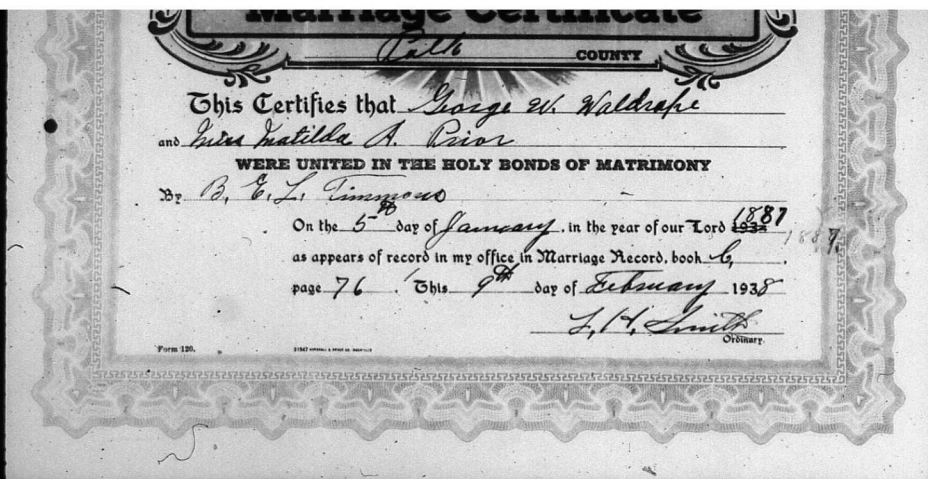 Marriage Certificate
Polk COUNTY
This Certifies that George W. Waldrope
and Miss Matilda A. Prior
WERE UNITED IN THE HOLY BONDS OF MATRIMONY
By B. E. L. Timmons
On the 5th day of January, in the year of our Lord 1887 193 1887.
as appears of record in my office in Marriage Record, book C,
page 76 This 9th day of February 1938
L. H. Smith
Ordinary.
Form 120.